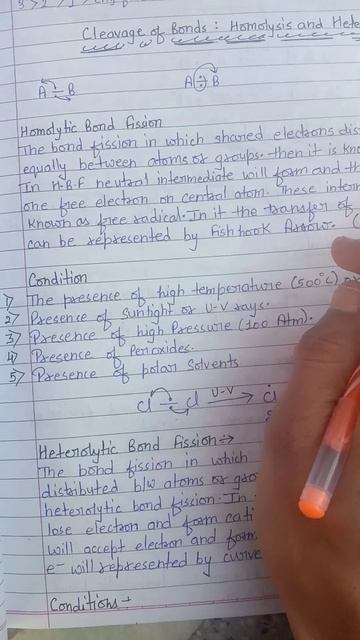 Cleavage of Bonds: Homolysis and Hete
A – B
A : B
Homolytic Bond Fission
The bond fission in which shared electrons dis
equally between atoms or groups. then it is kno
In H.B.F neutral intermediate will form and th
one free electron on central atom. These inter
known as free radical. In it the transfer of
can be represented by Fish hook Arrow. (
Condition
1) The presence of high temperature (500°C) or
2) Presence of Sunlight or U-V rays.
3) Presence of high Pressure (100 Atm).
4) Presence of Peroxides.
5) Presence of polar Solvents
Cl – Cl U-V → Cl
Heterolytic Bond Fission →
The bond fission in which
distributed b/w atoms or gro
heterolytic bond fission. In
lose electron and form cati
will accept electron and form
e- will represented by curve
Conditions →